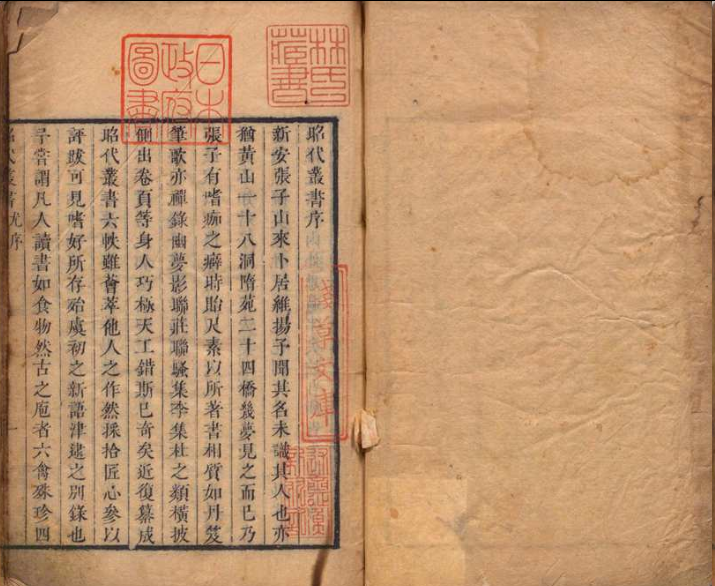 昭代叢書序
新安張子山來卜居維揚予聞其名未識其人也亦
猶黃山一十八洞隋苑二十四橋幾夢見之而已乃
張子有嗜痂之癖時貽尺素以所著書相質如丹笈
筆歌亦禪錄幽夢影聯莊聯騷集李集杜之類橫披
側出卷頁等身人巧極天工錯斯已奇矣近復纂成
昭代叢書六帙雖薈萃他人之作然採拾匠心參以
評跋可見嗜好所存殆虞初之新語津逮之別錄也
予嘗謂凡人讀書如食物然古之庖者六禽殊珍四
昭代叢書 尤序 一
林氏藏書
日本政府圖書
淺草文庫